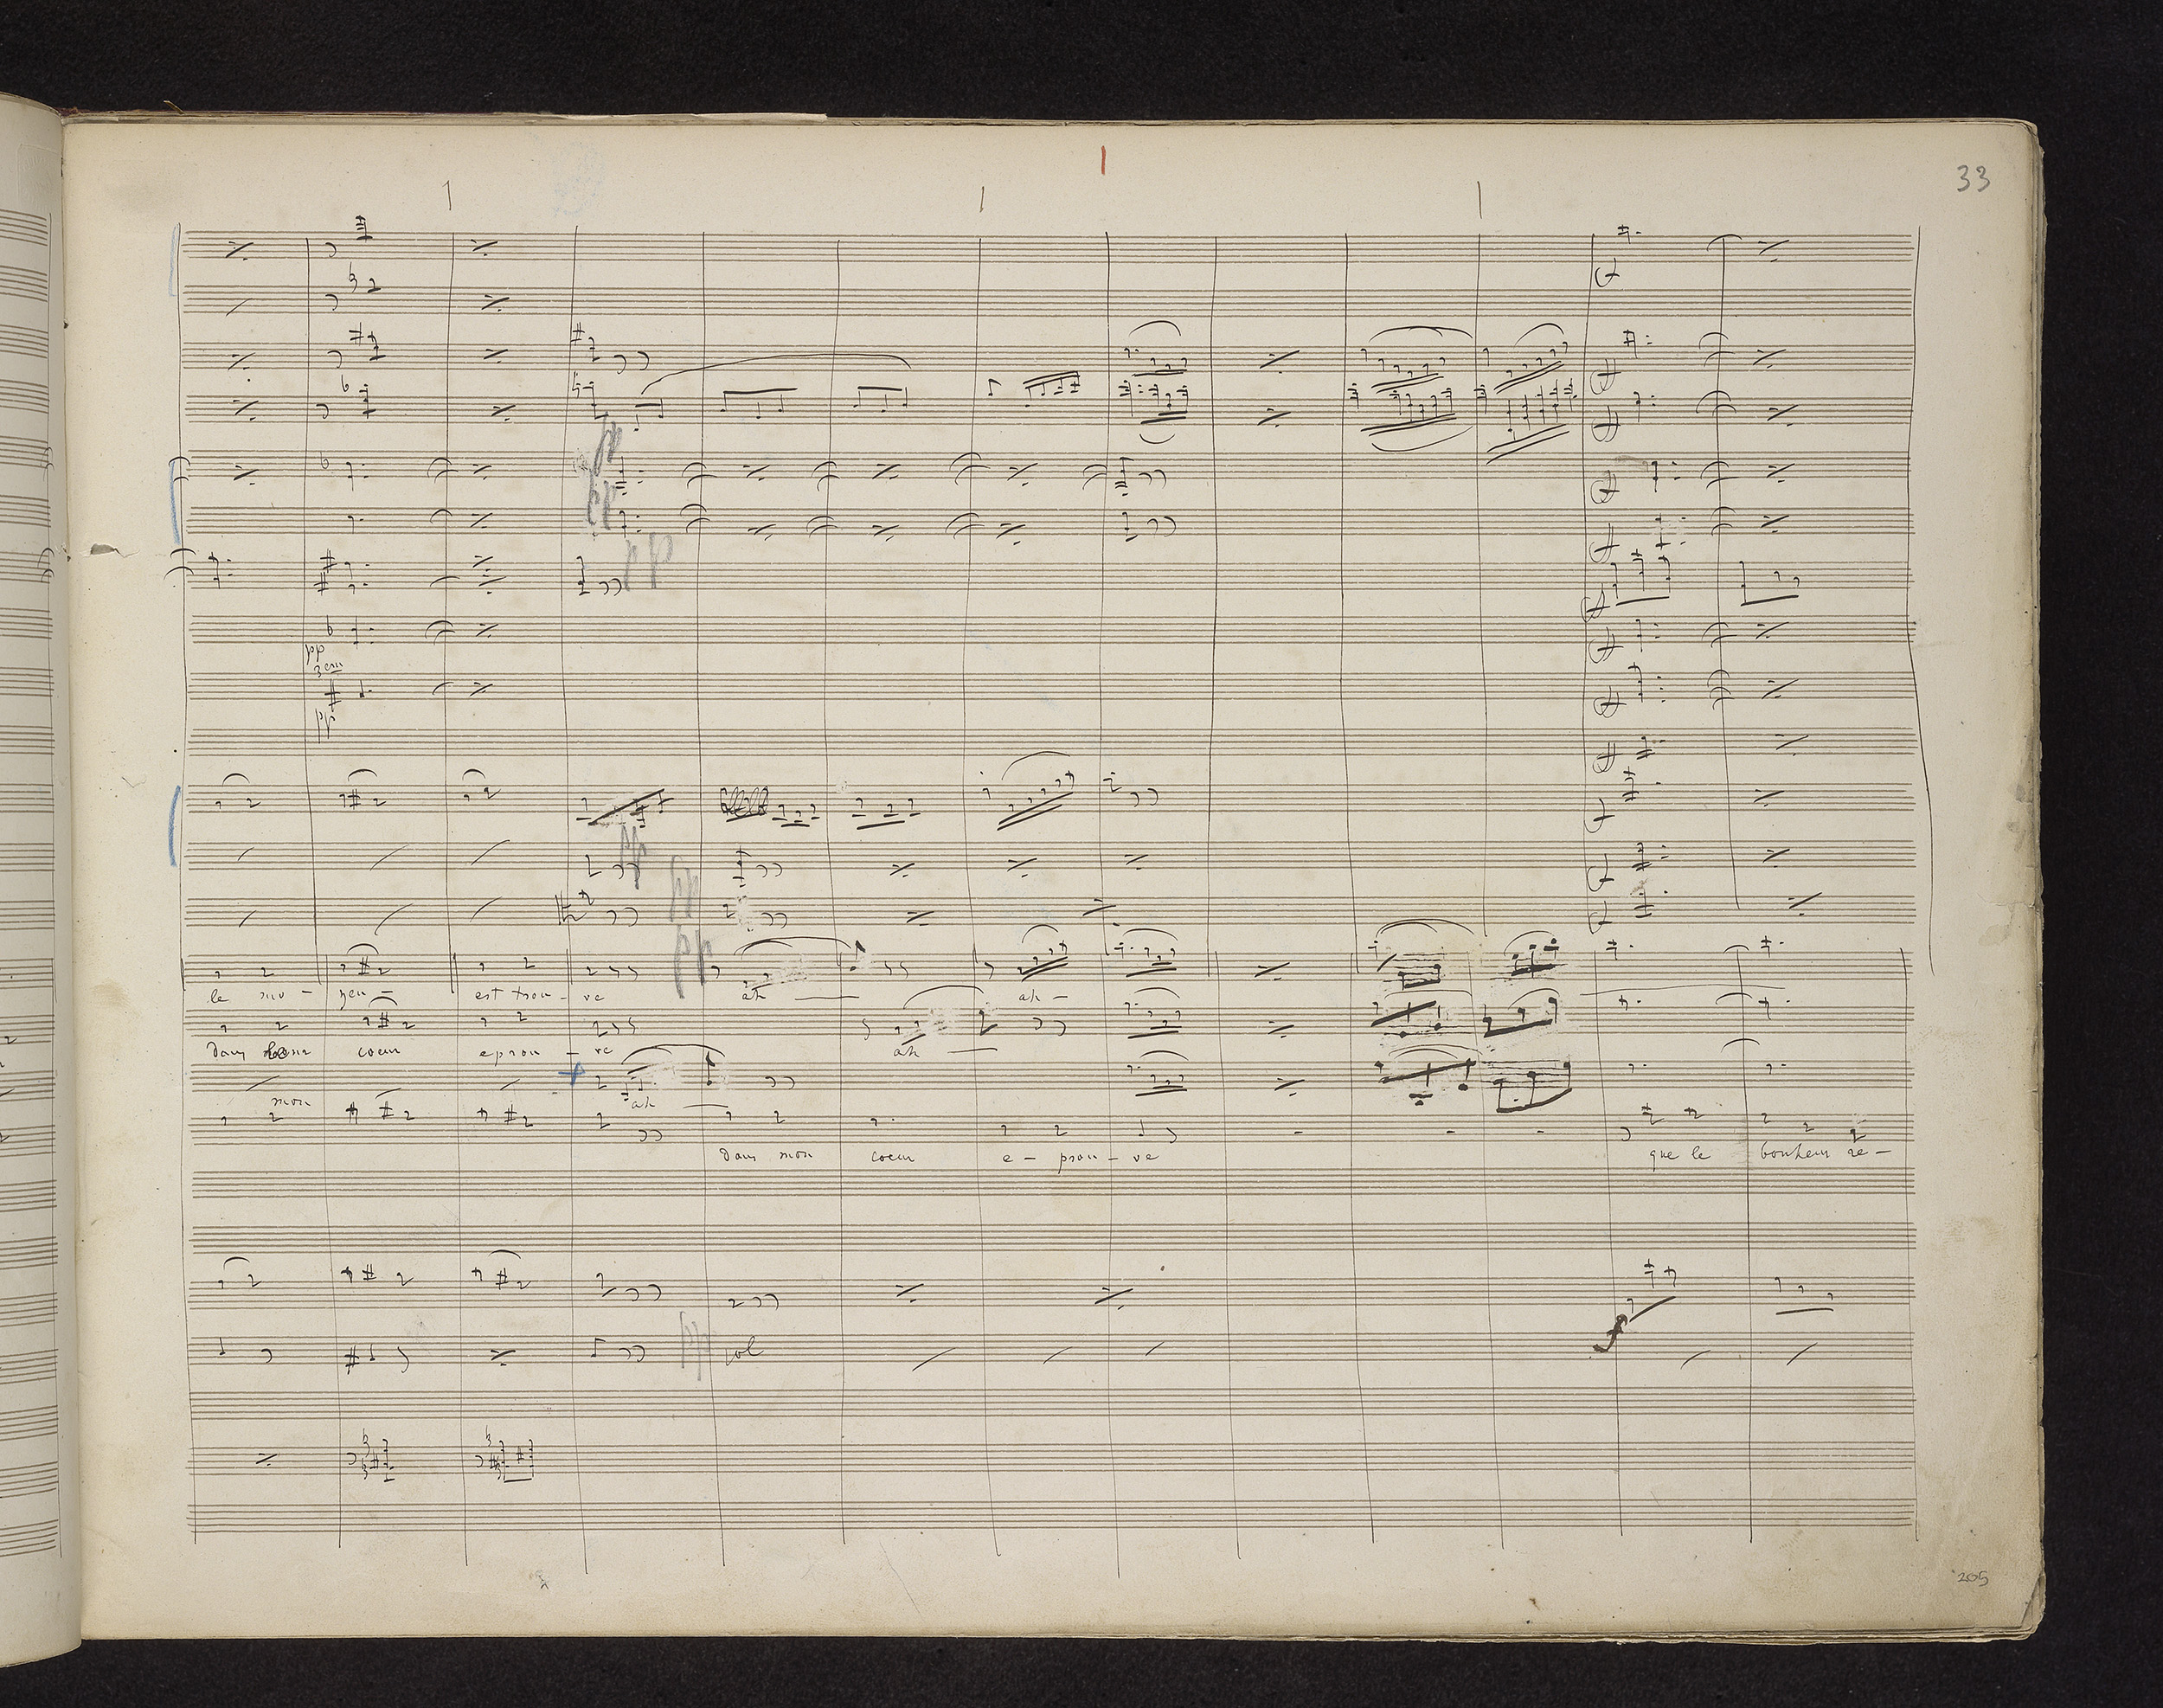 33
pp
pp
pp
pp
pp
pp
pp
pp
le mo - yen - est trou - vé ah ah -
dans coeur eprou - ve ah
mon ah
dans mon coeur e - prou - ve que le bonheur re -
f
pp col
205